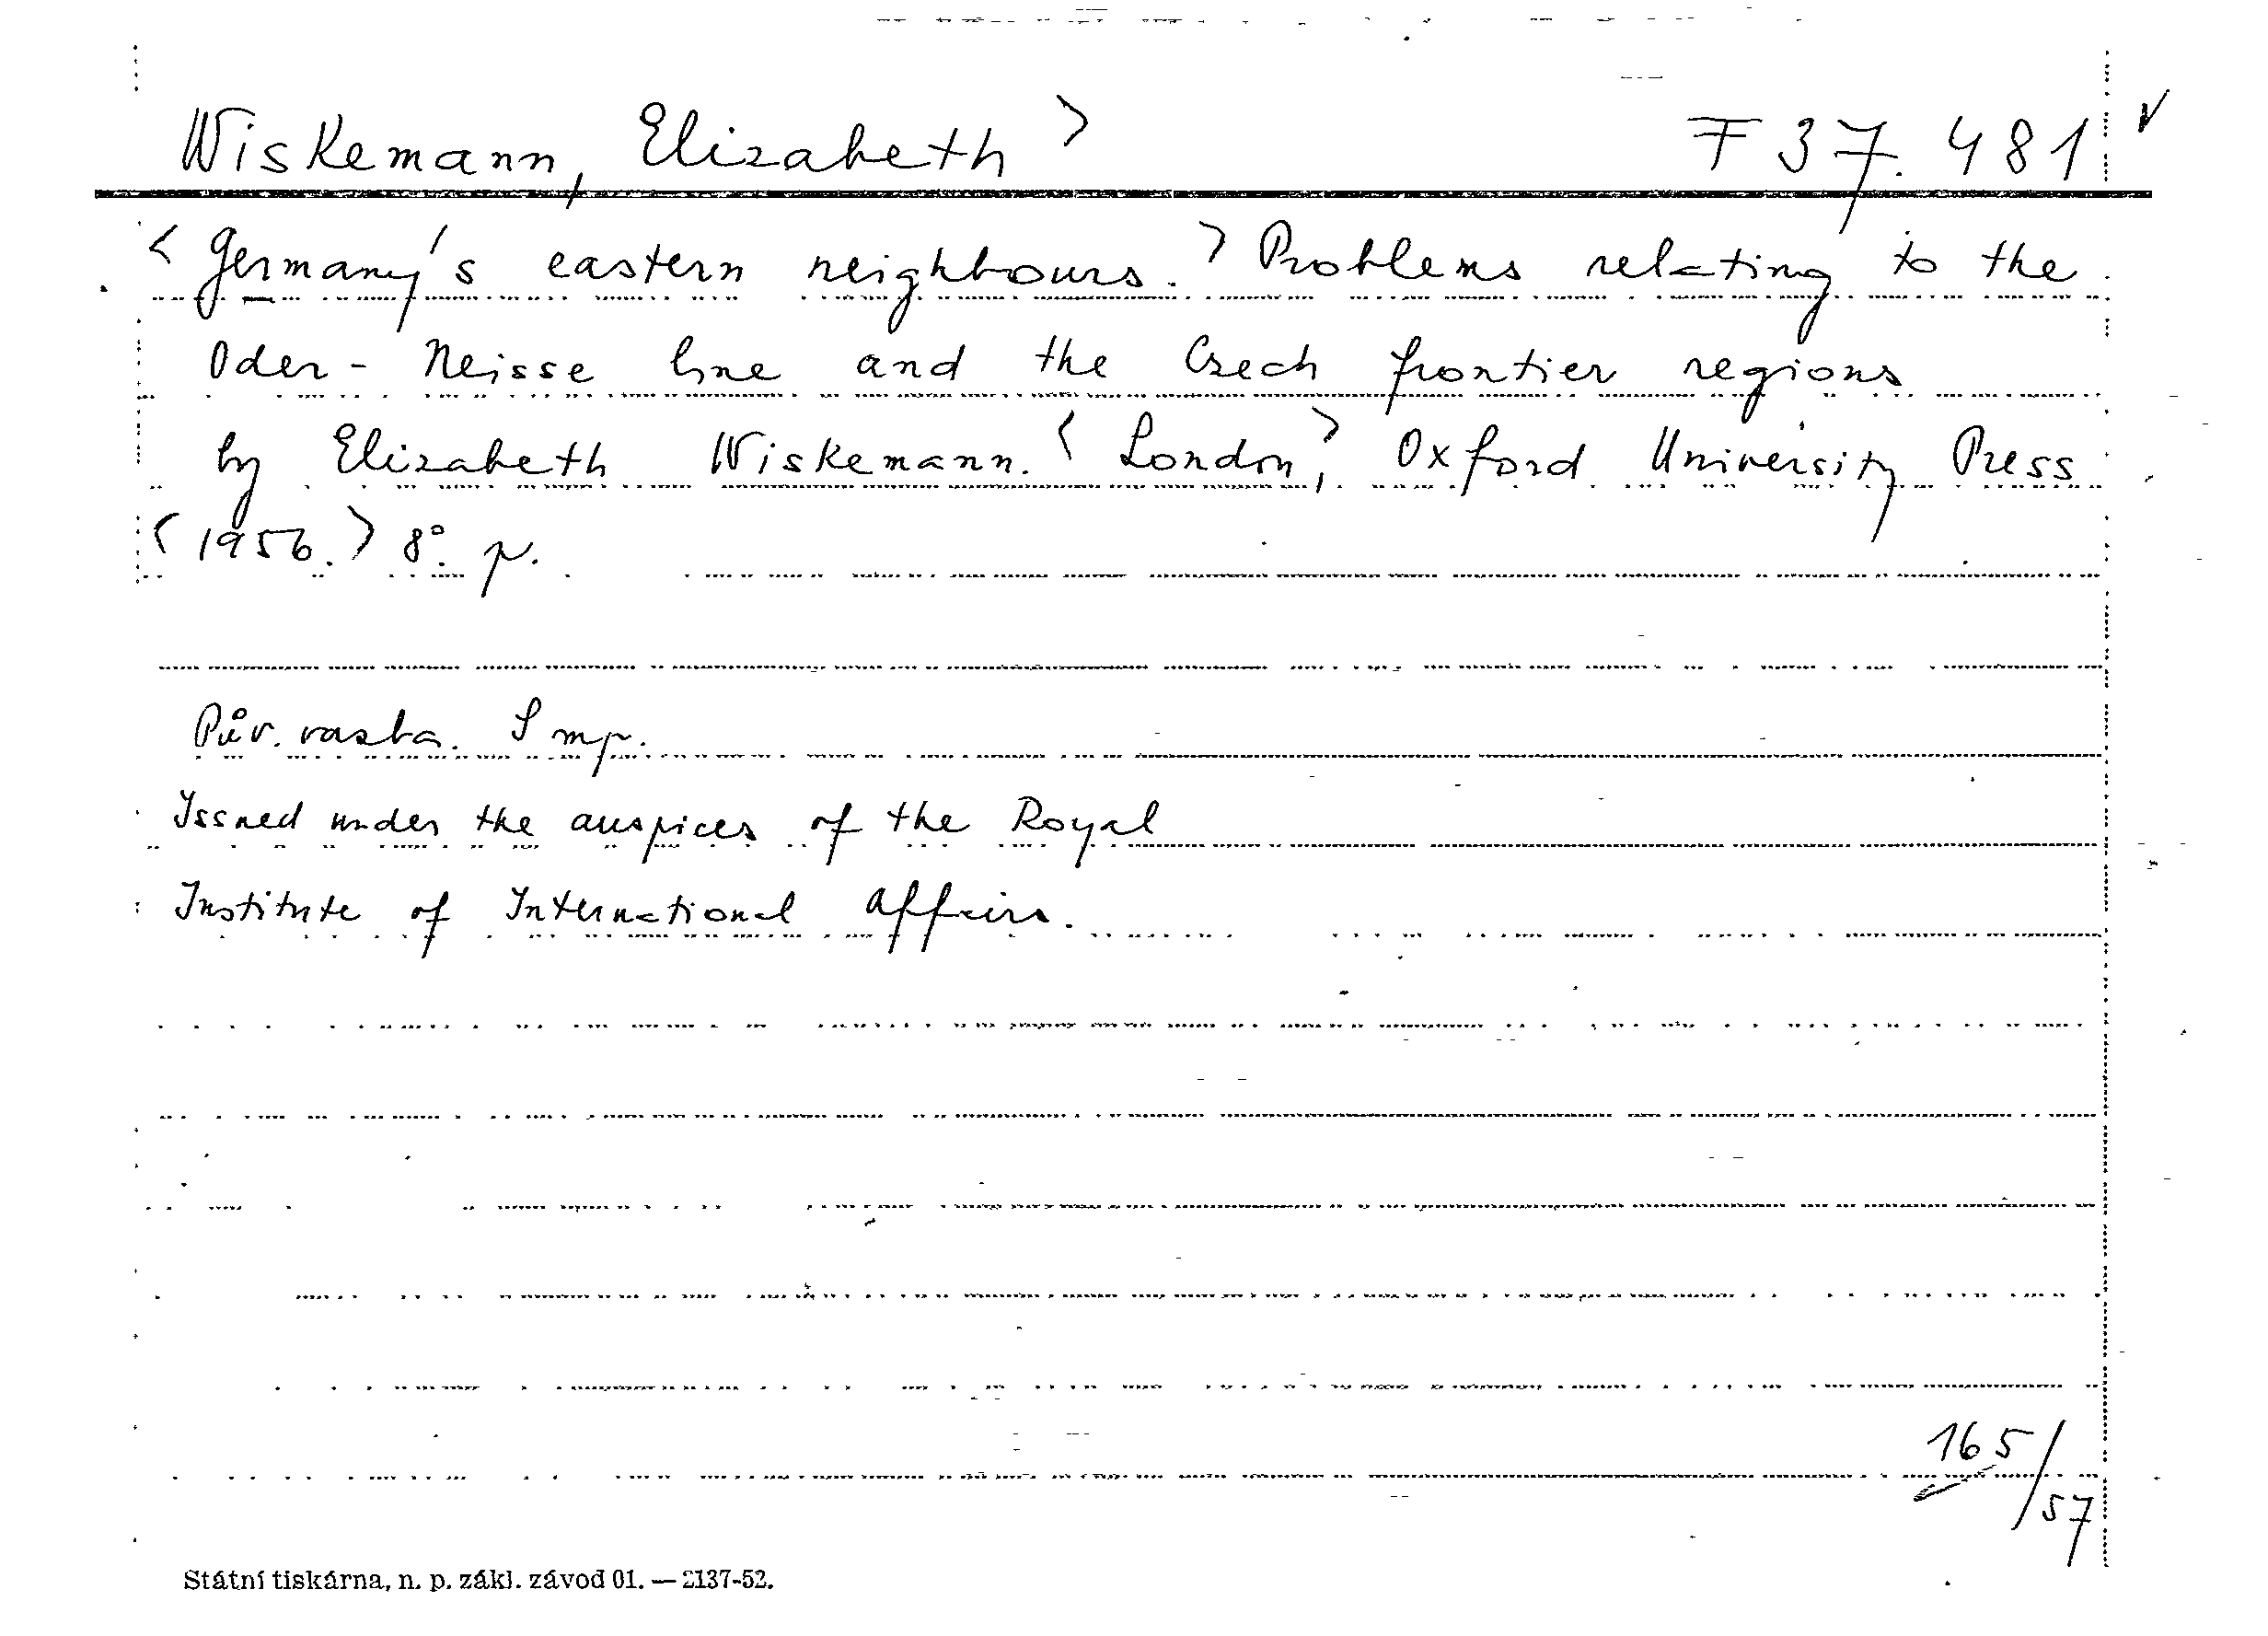 Wiskemann, Elizabeth > F 37.481 v
< Germany's eastern neighbours. > Problems relating to the
Oder-Neisse line and the Czech frontier regions
by Elizabeth Wiskemann. < London, > Oxford University Press
< 1956. > 8°. p.
Pův. vazba. S mp.
Issued under the auspices of the Royal
Institute of International Affairs.
165/57
Státní tiskárna, n. p. zákl. závod 01. — 2137-52.